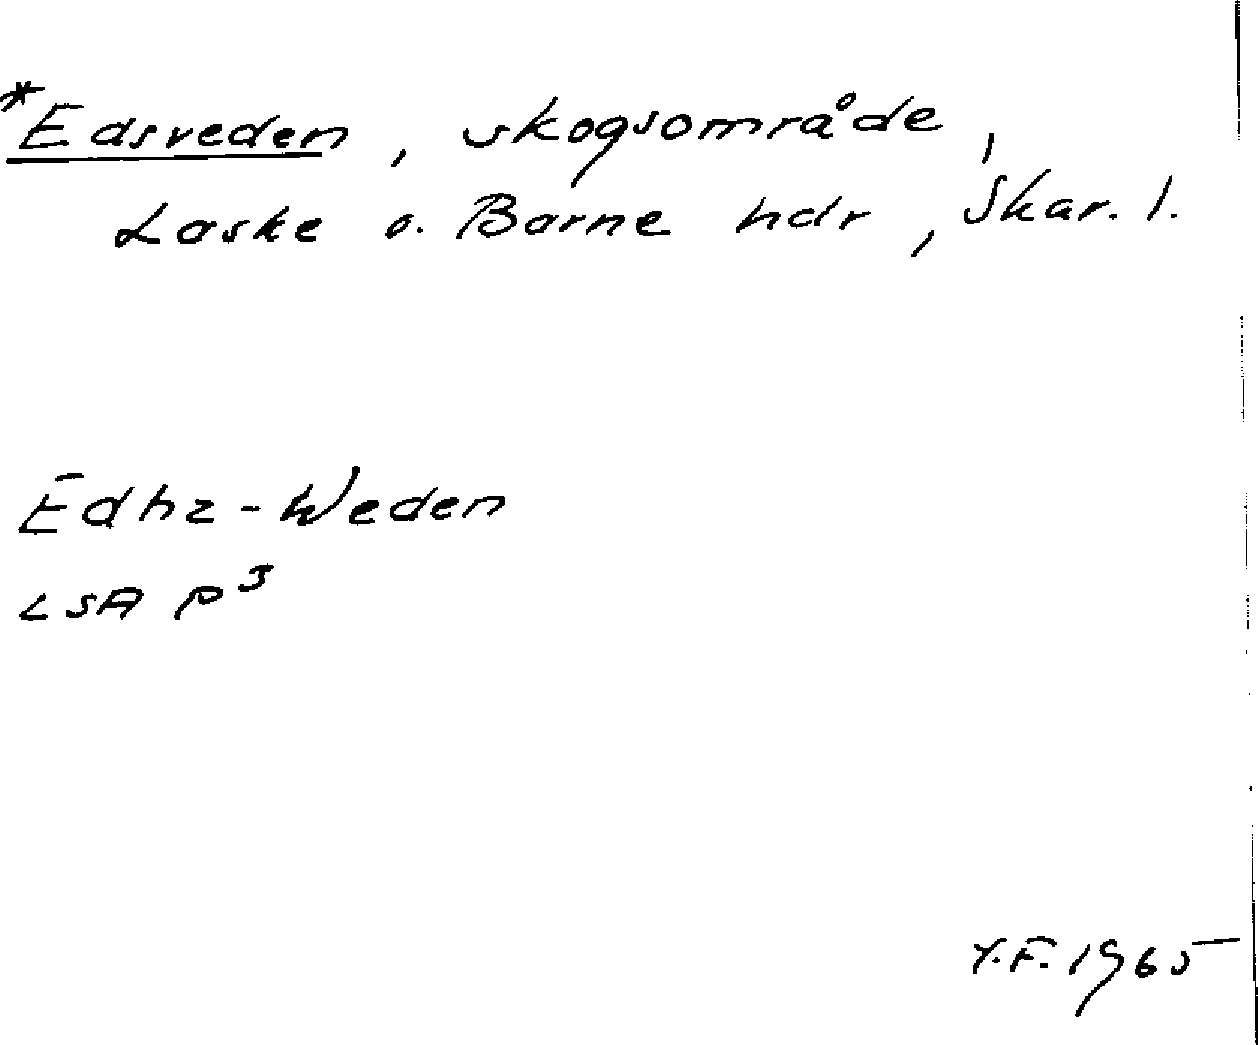 *Edsveden, skogsområde,
Laske o. Barne hdr, Skar. l.
Edhz-Weden
LSA P³
Y.F. 1965